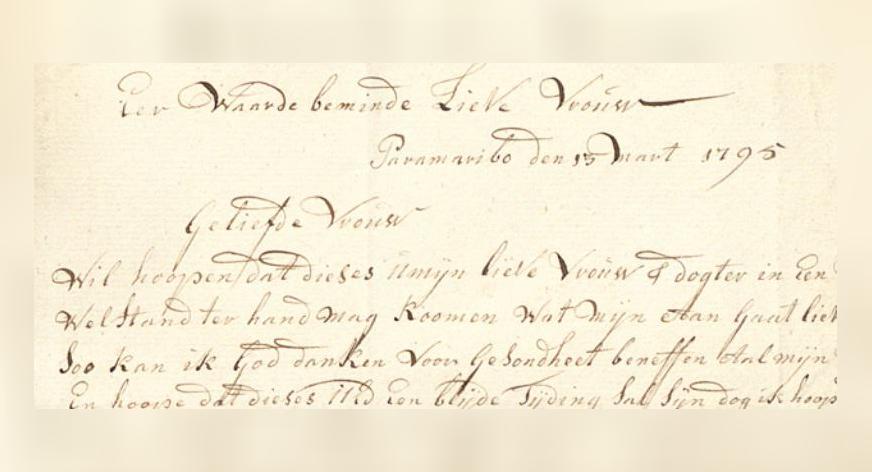 Eer Waarde beminde Lieve Vrouw
Paramaribo den 15 Mart 1795
Geliefde Vrouw
Wil hoopen dat dieses U mijn lieve Vrouw & dogter in Een
Welstand ter hand mag koomen Wat mijn Aan Gaat
Soo kan ik God danken voor Gesondheet beneffen Aal mijn
En hoope dat dieses UEd Een blijde Tijding Sal Sijn dog ik